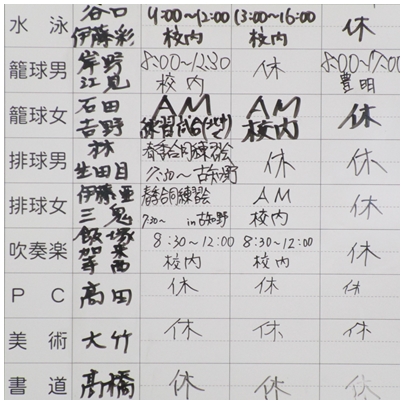 水泳 谷口 9:00〜12:00 13:00〜16:00 休
伊藤彩 校内 校内
籠球男 岸野 8:00〜12:30 休 8:00〜17:00
江見 校内 豊明
籠球女 石田 AM AM 休
吉野 練習試合 校内
排球男 林 春季合同練習会 休 休
生田目 7:30〜古知野
排球女 伊藤亜 春季合同練習会 AM 休
三鬼 7:30〜 in古知野 校内
吹奏楽 飯塚 8:30〜12:00 8:30〜12:00 休
加来 校内 校内
寺西
PC 高田 休 休 休
美術 大竹 休 休 休
書道 高橋 休 休 休